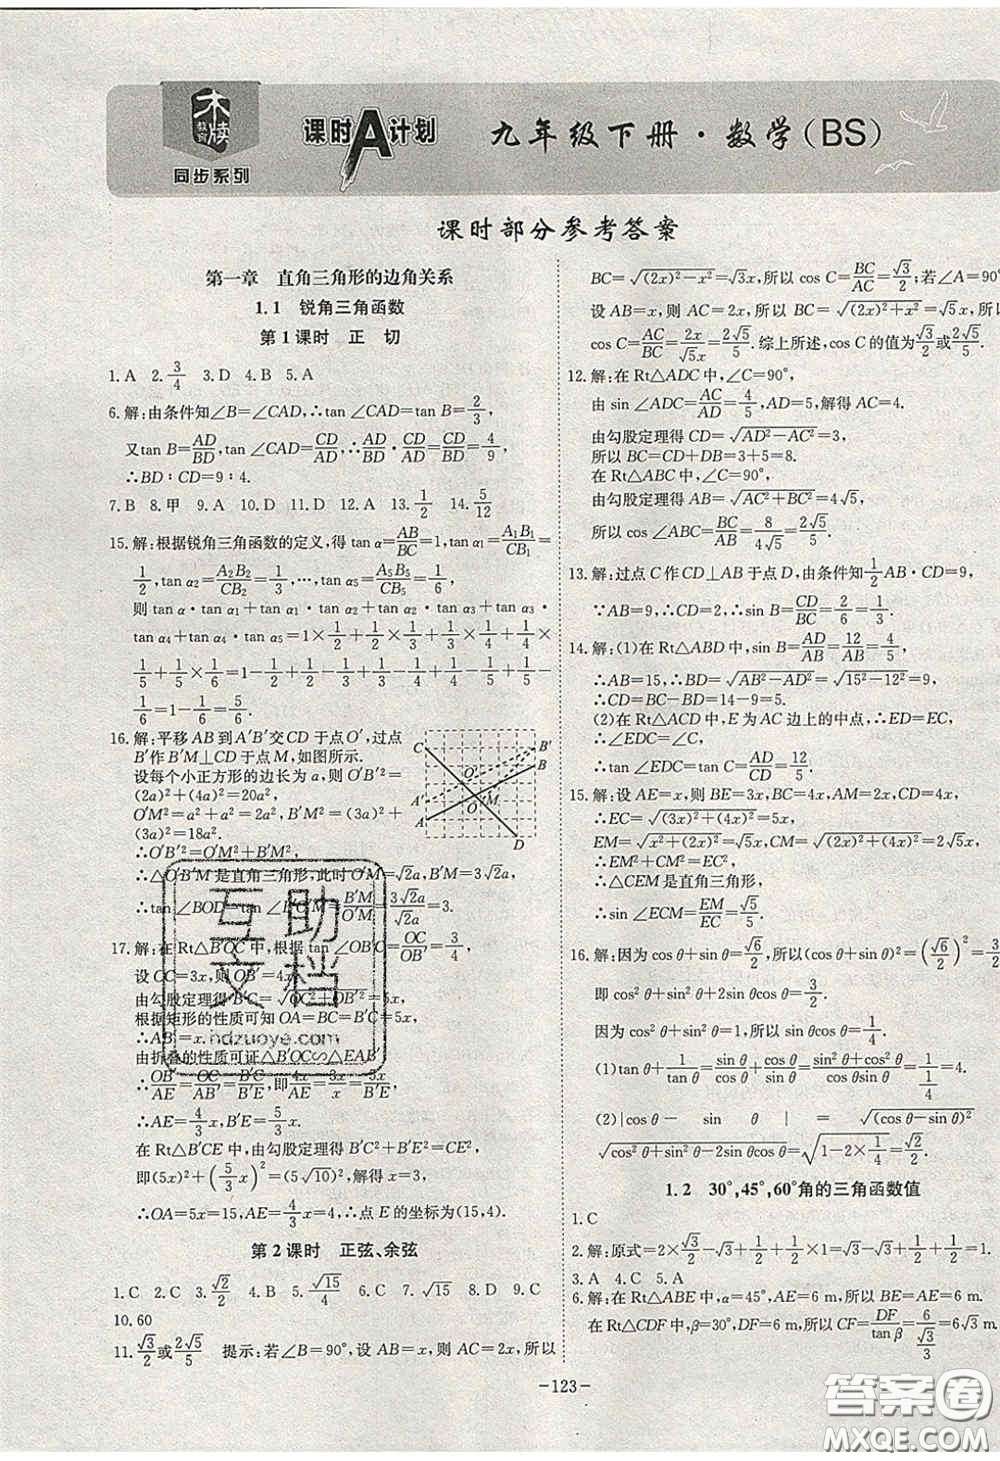 木牍教育
同步系列
课时A计划
九年级下册·数学(BS)
课时部分参考答案
第一章 直角三角形的边角关系
1.1 锐角三角函数
第1课时 正 切
1.A 2.3/4 3.D 4.B 5.A
6.解:由条件知∠B=∠CAD,∴tan∠CAD=tan B=2/3,
又tan B=AD/BD,tan∠CAD=CD/AD,∴AD/BD·CD/AD=CD/BD=4/9
∴BD∶CD=9∶4.
7.B 8.甲 9.A 10.D 11.D 12.A 13.1/2 14.5/12
15.解:根据锐角三角函数的定义,得tan α=AB/BC=1,tan α1=A1B1/CB1=
1/2,tan α2=A2B2/CB2=1/3,…,tan α5=A5B5/CB5=1/6,
则tan α·tan α1+tan α1·tan α2+tan α2·tan α3+tan α3·
tan α4+tan α4·tan α5=1×1/2+1/2×1/3+1/3×1/4+1/4×
1/5+1/5×1/6=1-1/2+1/2-1/3+1/3-1/4+1/4-1/5+1/5-
1/6=1-1/6=5/6.
16.解:平移AB到A′B′交CD于点O′,过点
B′作B′M⊥CD于点M,如图所示.
设每个小正方形的边长为a,则O′B′²=
(2a)²+(4a)²=20a²,
O′M²=a²+a²=2a²,B′M²=(3a)²+
(3a)²=18a².
C B′ B O′ A′ O M A D
∴O′B′²=O′M²+B′M²,
∴△O′B′M是直角三角形,此时O′M=√2a,B′M=3√2a,
∴tan∠BOD=tan∠B′O′M=B′M/O′M=3√2a/√2a=3.
17.解:在Rt△B′OC中,根据tan∠OB′C=OC/OB′=3/4,
设OC=3x,则OB′=4x,
由勾股定理得B′C=√(OC²+OB′²)=5x,
根据矩形的性质可知OA=BC=B′C=5x,
∴AB′=x.
由折叠的性质可证△B′OC∽△EAB′,
∴OB′/AE=OC/AB′=B′C/B′E,即4x/AE=3x/x=5x/B′E,
∴AE=4/3x,B′E=5/3x.
在Rt△B′CE中,由勾股定理得B′C²+B′E²=CE²,
即(5x)²+(5/3x)²=(5√10)²,
∴OA=5x=15,AE=4/3x=4,∴点E的坐标为(15,4).
第2课时 正弦、余弦
1.C 2.C 3.√2/2 4.B 5.√15/4 6.C 7.√15 8.D 9.C
10.60
11.√3/2或2√5/5 提示:若∠B=90°,设AB=x,则AC=2x,所以
BC=√((2x)²-x²)=√3x,所以cos C=BC/AC=√3/2;若∠A=90°,
设AB=x,则AC=2x,所以BC=√((2x)²+x²)=√5x,所以
cos C=AC/BC=2x/√5x=2√5/5.综上所述,cos C的值为√3/2或2√5/5.
12.解:在Rt△ADC中,∠C=90°,
由sin∠ADC=AC/AD=4/5,AD=5,解得AC=4.
由勾股定理得CD=√(AD²-AC²)=3,
所以BC=CD+DB=3+5=8.
在Rt△ABC中,∠C=90°,
由勾股定理得AB=√(AC²+BC²)=4√5,
所以cos∠ABC=BC/AB=8/4√5=2√5/5.
13.解:过点C作CD⊥AB于点D,由条件知1/2AB·CD=9,
∵AB=9,∴CD=2,∴sin B=CD/BC=2/6=1/3.
14.解:(1)在Rt△ABD中,sin B=AD/AB=12/AB=4/5,
∴AB=15,∴BD=√(AB²-AD²)=√(15²-12²)=9,
∴CD=BC-BD=14-9=5.
(2)在Rt△ACD中,E为AC边上的中点,∴ED=EC,
∴∠EDC=∠C,
∴tan∠EDC=tan C=AD/CD=12/5.
15.解:设AE=x,则BE=3x,BC=4x,AM=2x,CD=4x,
∴EC=√((3x)²+(4x)²)=5x,
EM=√(x²+(2x)²)=√5x,CM=√((2x)²+(4x)²)=2√5x,
∴EM²+CM²=EC²,
∴△CEM是直角三角形,
∴sin∠ECM=EM/EC=√5/5.
16.解:因为cos θ+sin θ=√6/2,所以(cos θ+sin θ)²=(√6/2)²=3/2
即cos²θ+sin²θ+2sin θcos θ=3/2.
因为cos²θ+sin²θ=1,所以sin θcos θ=1/4.
(1)tan θ+1/tan θ=sin θ/cos θ+cos θ/sin θ=(sin²θ+cos²θ)/(sin θcos θ)=1/(1/4)=4.
(2)|cos θ-sin θ|=√((cos θ-sin θ)²)=
√(cos²θ+sin²θ-2sin θcos θ)=√(1-2×1/4)=√2/2.
1.2 30°,45°,60°角的三角函数值
1.C
2.解:原式=2×√3/2-√3+1/2+1/2×1=√3-√3+1/2+1/2=1.
3.A 4.C 5.A
6.解:在Rt△ABE中,α=45°,AE=6 m,所以BE=AE=6 m.
在Rt△CDF中,β=30°,DF=6 m,所以CF=DF/tan β=6/(√3/3)=6√3 m.
-123-
互助
文档
hdzuoye.com
答案圈
MXQE.COM